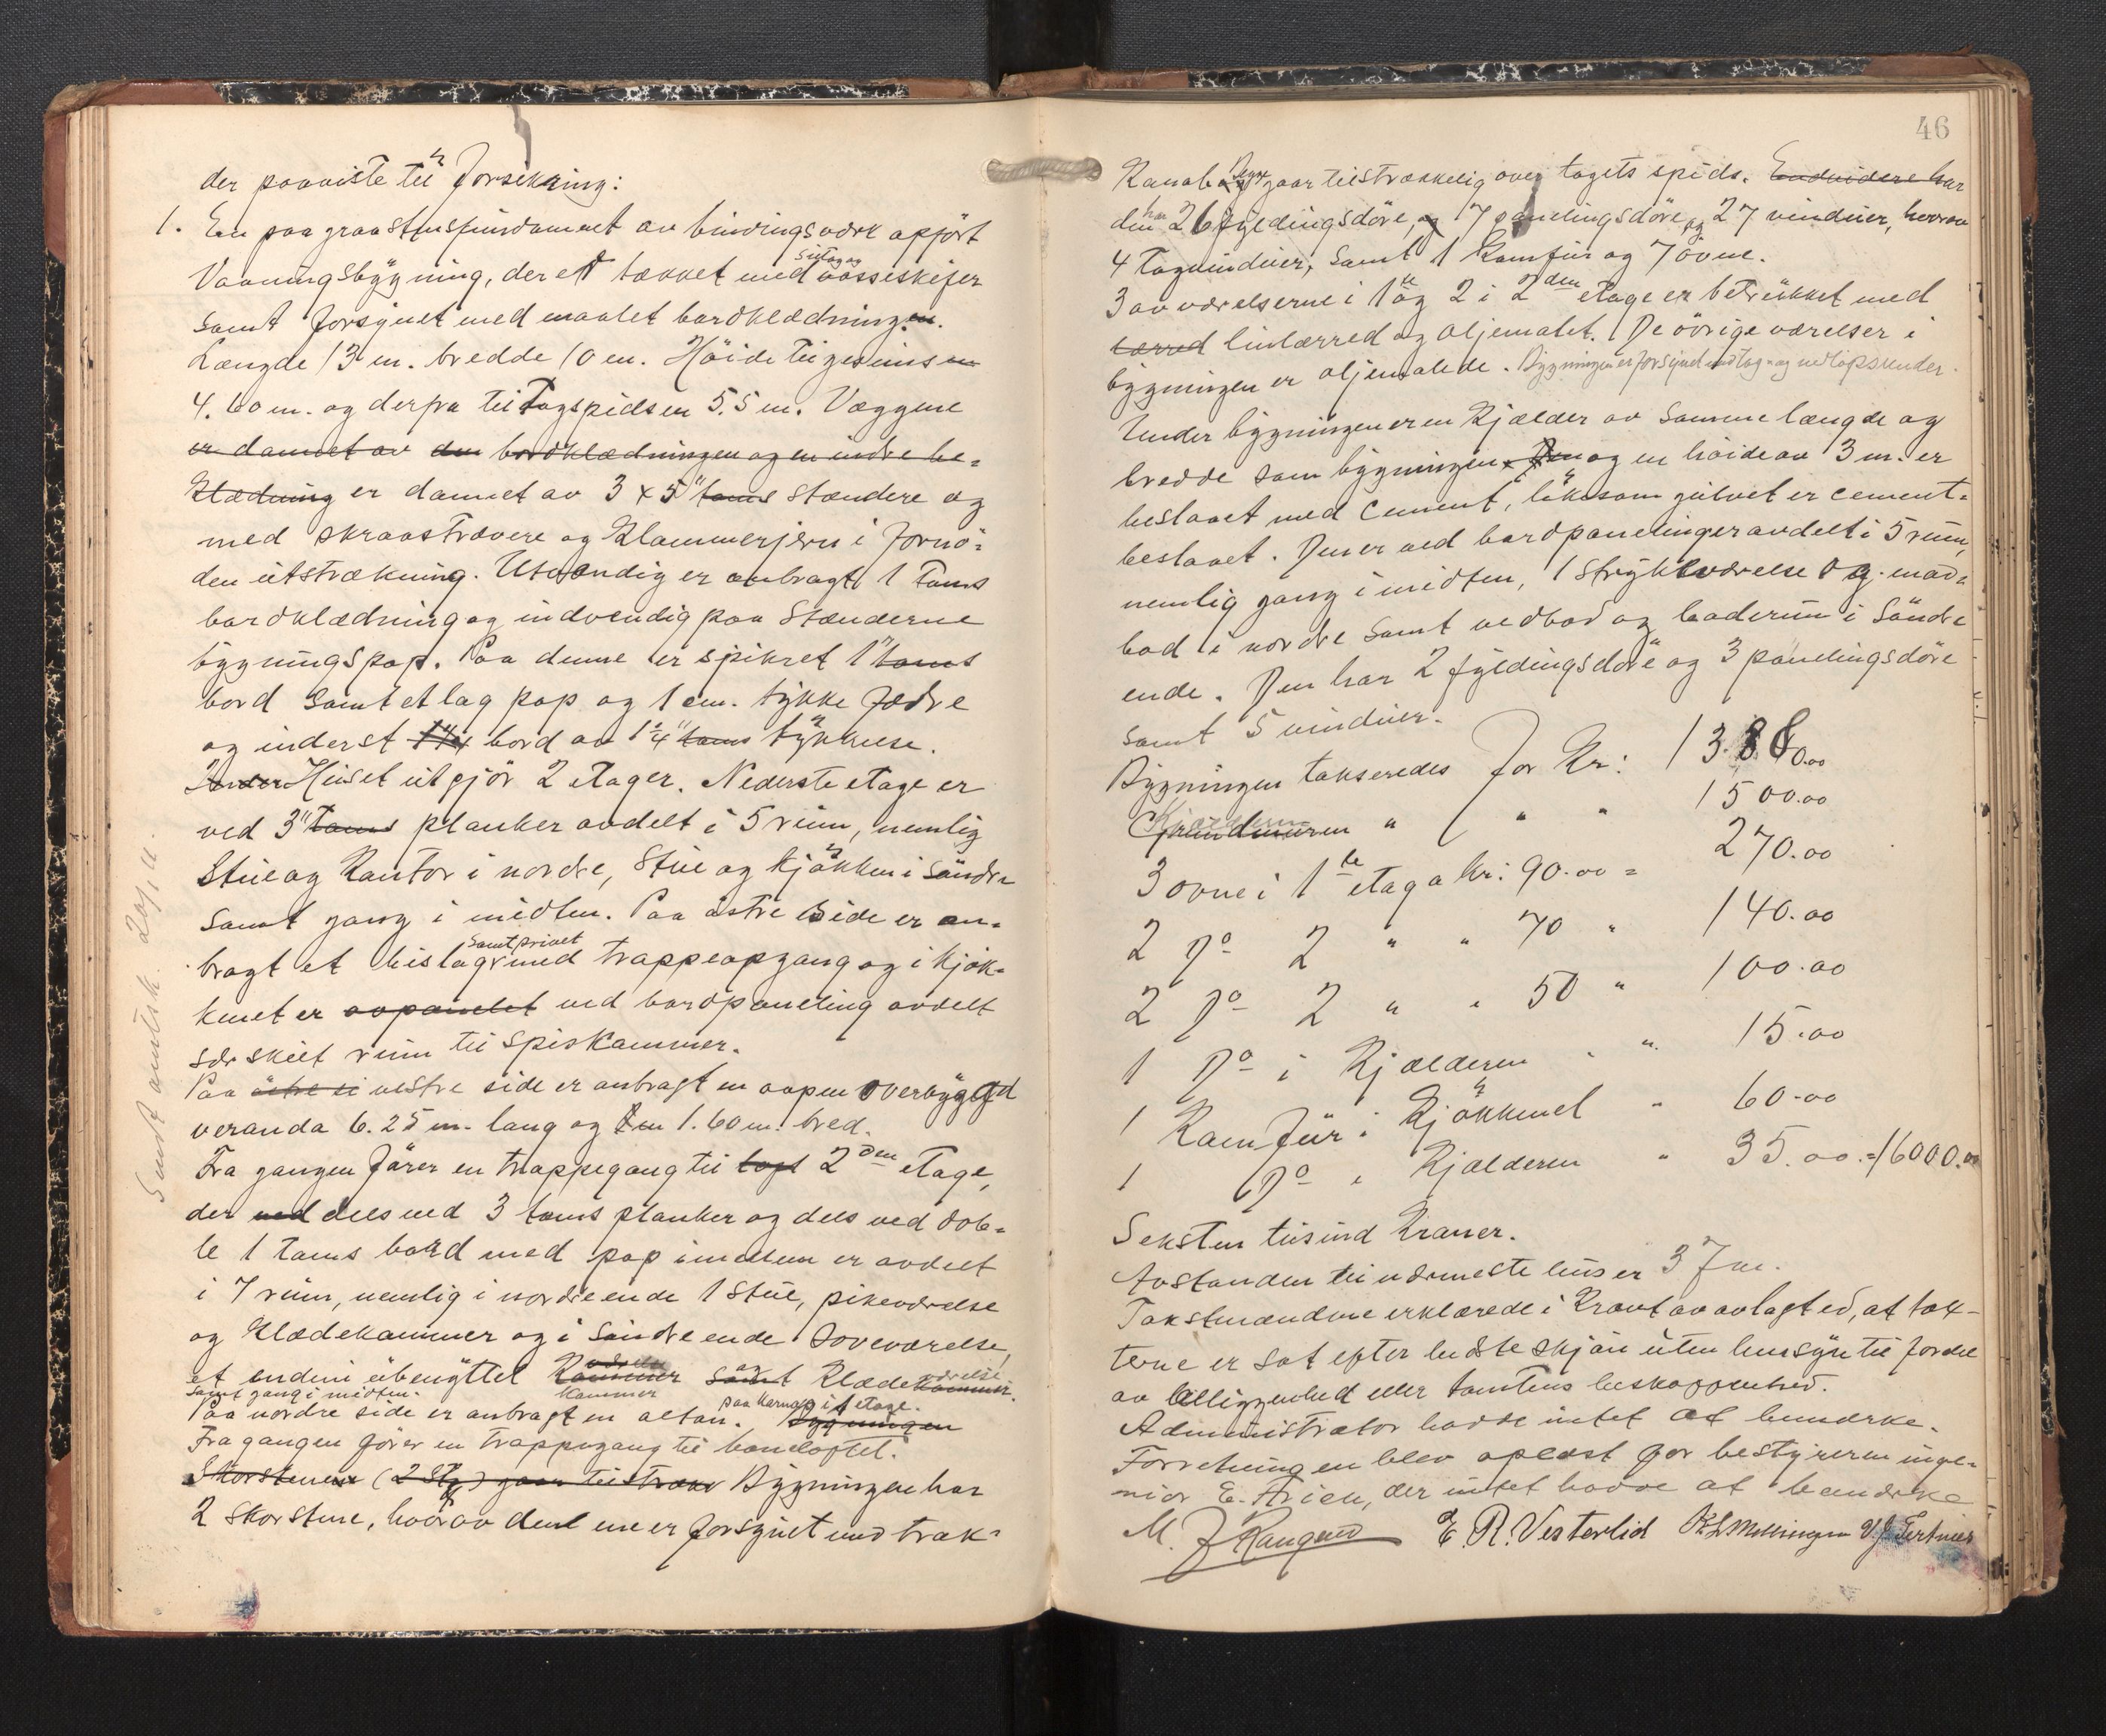 der paaviste til forsikring:
1. En paa graastensfundament av bindingsverk opført
Vaaningsbygning, der er tækket med sutag og vosseskifer
samt forsynet med maalet bordklædning.
Længde 13 m. bredde 10 m. Höide til gesimsen
4.60 m. og derfra til Tagspidsen 5.5 m. Væggene
er dannet av den bordklædningen og en indre be-
klædning er dannet av 3 x 5" toms stændere og
med skraastrævere og Klammerjern i fornö-
den utstrækning. Utvændig er anbragt 1 toms
bordklædning og indvendig paa Stænderne
bygningspap. Paa denne er spikret 1" toms
bord samt et lag pap og 1 cm. tykke fædre
og inderst 1¼ bord av 1¼" toms tykkelse.
Huset utgjör 2 etager. Nederste etage er
ved 3" toms planker avdelt i 5 rum, nemlig
Stue og Kontor i nordre, Stue og Kjøkken i søndre
samt gang i midten. Paa östre side er an-
bragt et bislag samt privet med trappeopgang og i kjøk-
kenet er avpanelet ved bordpaneling avdelt
særskilt rum til Spiskammer.
Paa östre si vestre side er anbragt en aapen overbygget
veranda 6.25 m. lang og 1.60 m. bred.
Fra gangen fører en trappegang til loft 2den etage,
der ved dels ved 3 toms planker og dels ved dob-
le 1 toms bord med pap imellem er avdelt
i 7 rum, nemlig i nordre ende 1 Stue, pikeværelse
og Klædekammer og i Søndre ende Soveværelse,
et endnu ubenyttet Kammer værelse kammer samt og Klædekammer værelse
samt gang i midten.
Paa nordre side er anbragt en altan. paa Karnap i 1 etage. Bygningen
Fra gangen fører en trappegang til haneloftet.
Skorstenene (2 Stk) gaar tilstræk Bygningen har
2 skorstene, hvorav den ene er forsynet med træk-
46
Kanal. Begge gaar tilstrækkelig over tagets spids. Endvidere har
den har 26 fyldingsdöre, og 17 panelingsdöre og 27 vinduer, hvorav
4 Tagvinduer, samt 1 Komfur og 7 ovne.
3 av værelserne i 1ste og 2 i 2den etage er betrukket med
lærred linlærred og oljemalet. De övrige værelser i
bygningen er oljemalede. Bygningen er forsynet med tag- og nedløpsrender.
Under bygningen er en Kjælder av samme længde og
bredde som bygningen. Den og en høide av 3 m. er
beslaaet med Cement, liksom gulvet er cement-
beslaaet. Den er ved bordpanelinger avdelt i 5 rum,
nemlig gang i midten, 1 strykeværelse og mad-
bod i nordre samt vedbod og baderum i Söndre
ende. Den har 2 fyldingsdöre og 3 panelingsdöre
samt 5 vinduer.
Bygningen takseredes for Kr: 13880.00
Grundmuren Kjælderen " " " 1500.00
3 ovne i 1te etag a kr: 90.00 = 270.00
2 Do 2 " " 70 " 140.00
2 Do 2 " " 50 " 100.00
1 Do i Kjælderen " " 15.00
1 Komfur i Kjøkkenet " 60.00
1 Do i Kjælderen " 35.00 = 16000.00
Seksten tusind Kroner.
Avstanden til nærmeste hus er 37 m.
Takstmændene erklærede i Kravt av avlagt ed, at tak-
terne er sat efter bedste skjøn uten hensyn til fordel
av beliggenhed eller tomtens beskaffenhed.
Administrator hadde intet at bemærke.
Forretningen blev oplæst for bestyreren inge-
niør E. Arien, der intet hadde at bemærke
M. J. Kangsud E. R. Vesterlid V. J. Tertnæs
Sendt amtsk.